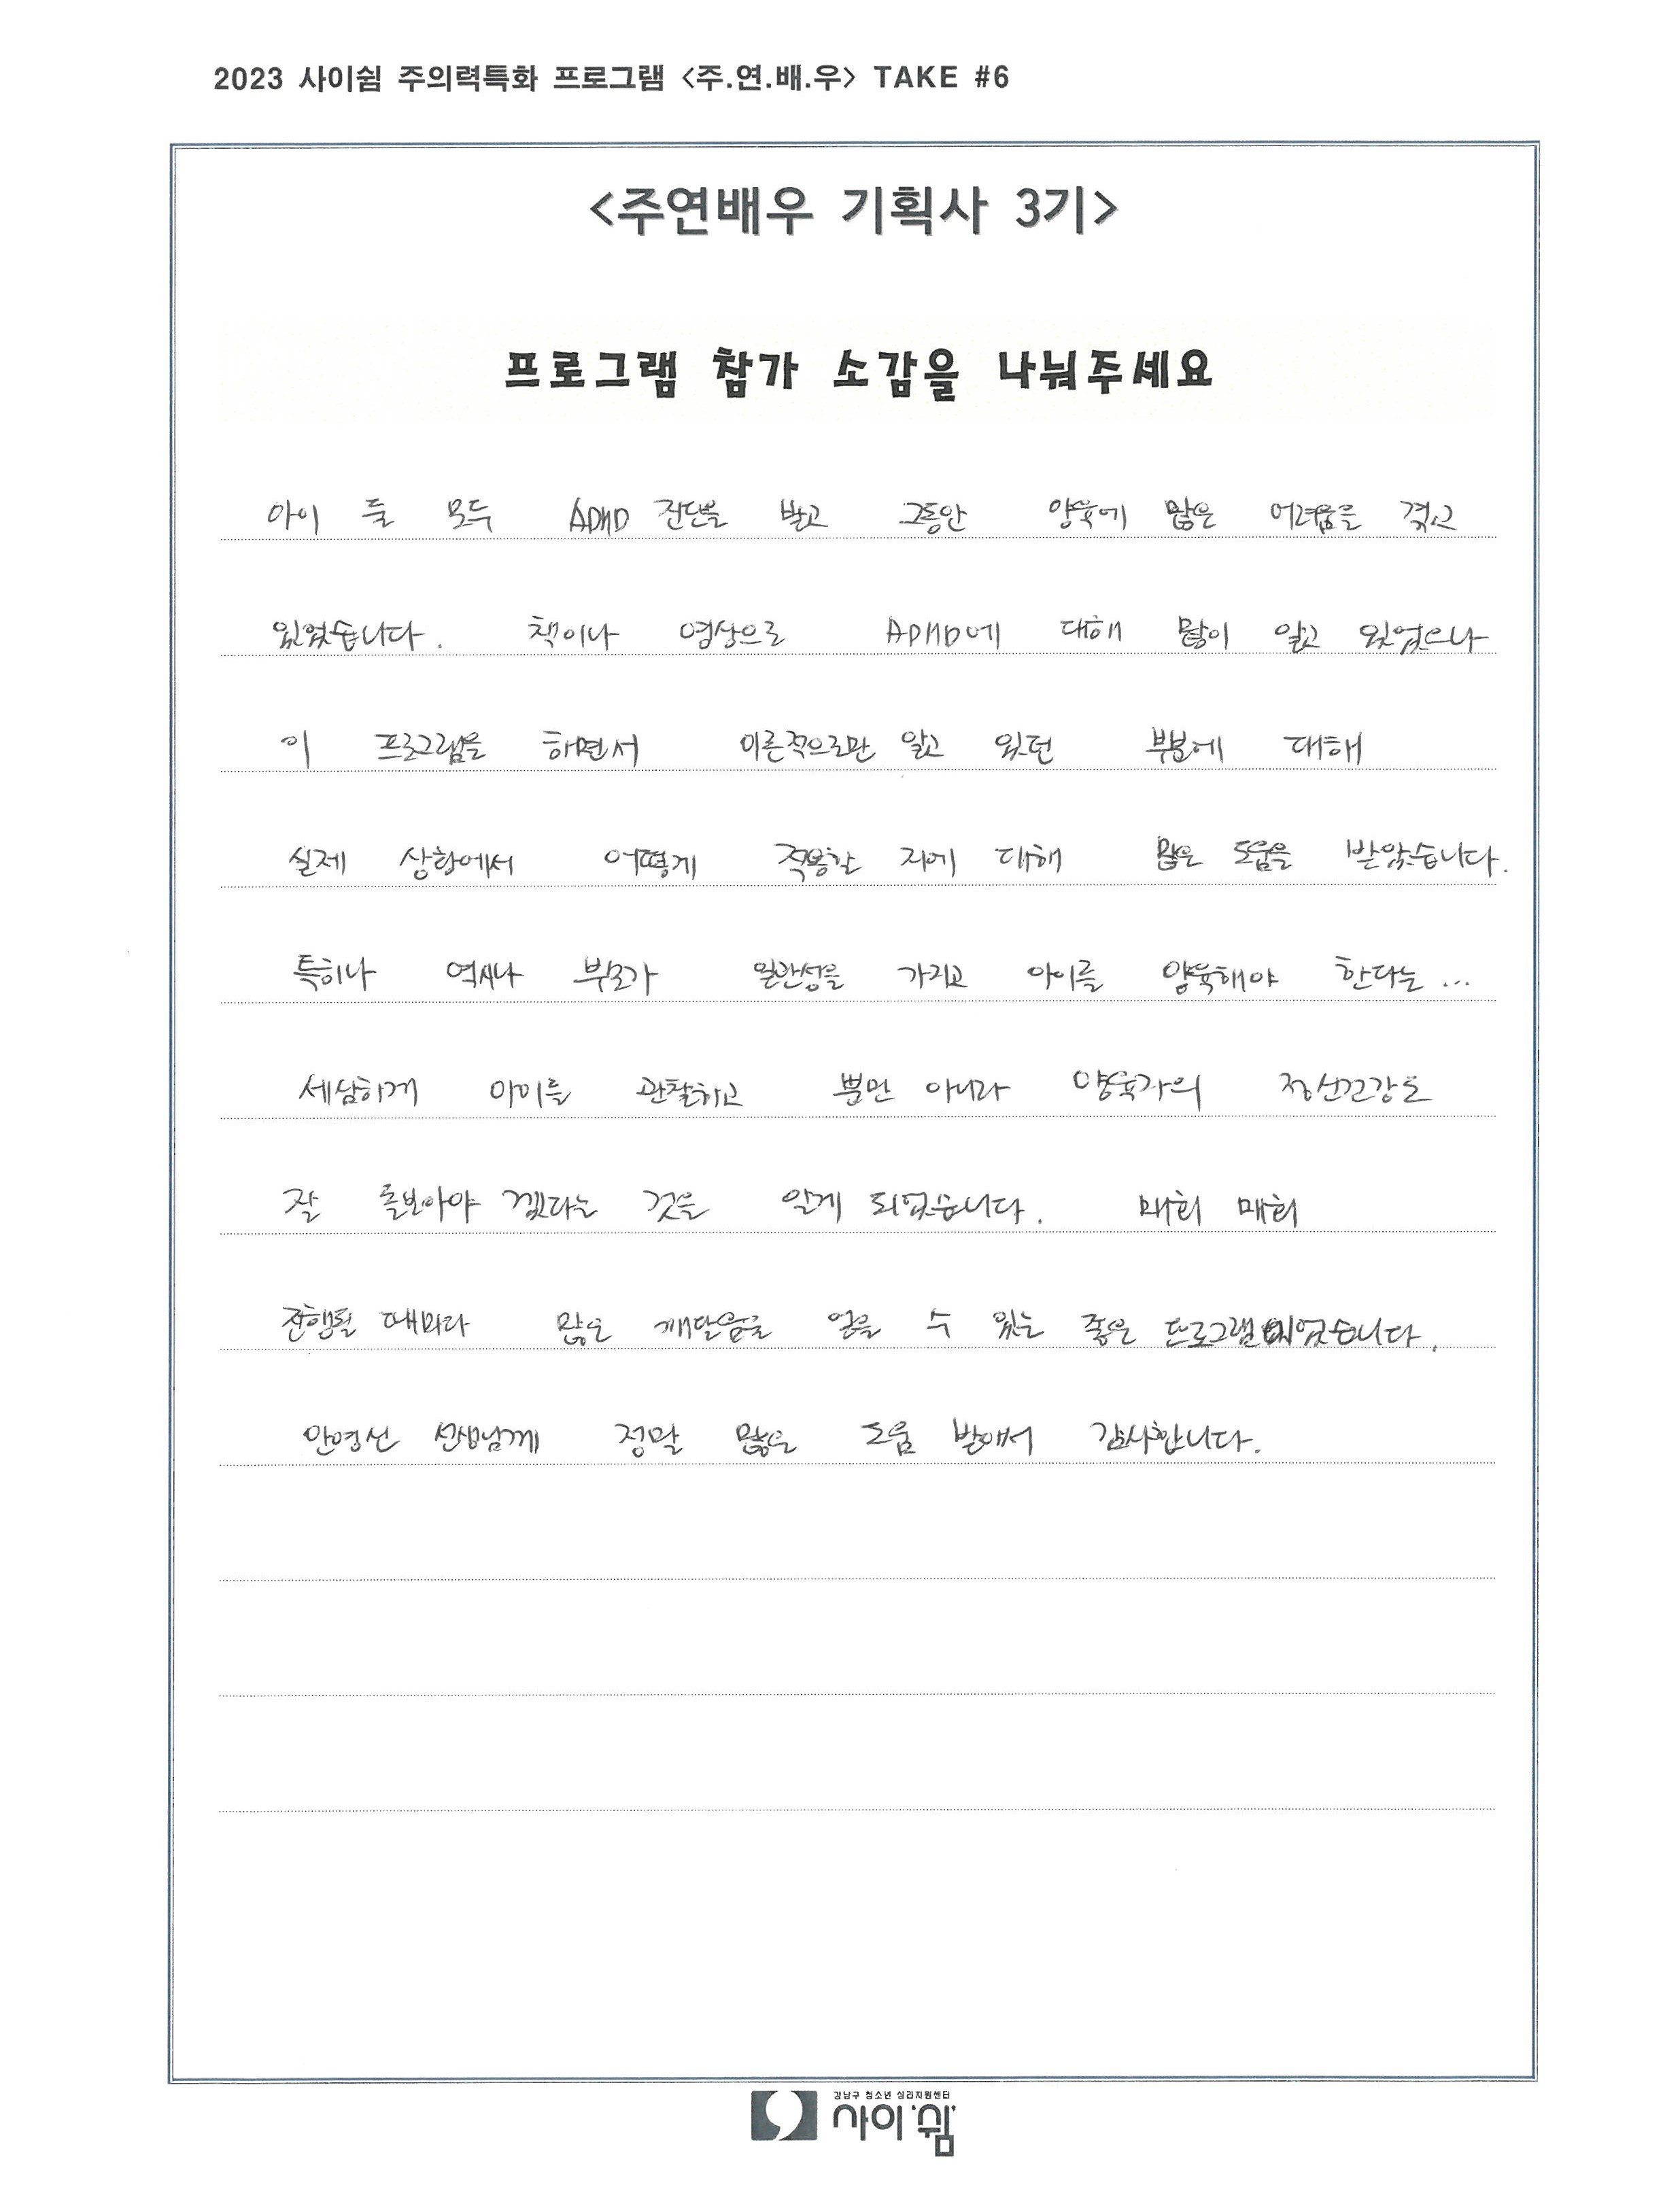 2023 사이쉼 주의력특화 프로그램 <주.연.배.우> TAKE #6
<주연배우 기획사 3기>
프로그램 참가 소감을 나눠주세요
아이 둘 모두 ADHD 진단을 받고 그동안 양육에 많은 어려움을 겪고
있었습니다. 책이나 영상으로 ADHD에 대해 많이 알고 있었으나
이 프로그램을 하면서 이론적으로만 알고 있던 부분에 대해
실제 상황에서 어떻게 적용할 지에 대해 많은 도움을 받았습니다.
특히나 역시나 부모가 일관성을 가지고 아이를 양육해야 한다는...
세심하게 아이를 관찰하고 뿐만 아니라 양육자의 정신건강도
잘 돌보아야 겠다는 것을 알게 되었습니다. 매회 매회
진행될 때마다 많은 깨달음을 얻을 수 있는 좋은 프로그램이었습니다.
안영신 선생님께 정말 많은 도움 받아서 감사합니다.
강남구 청소년 심리지원센터
사이쉼